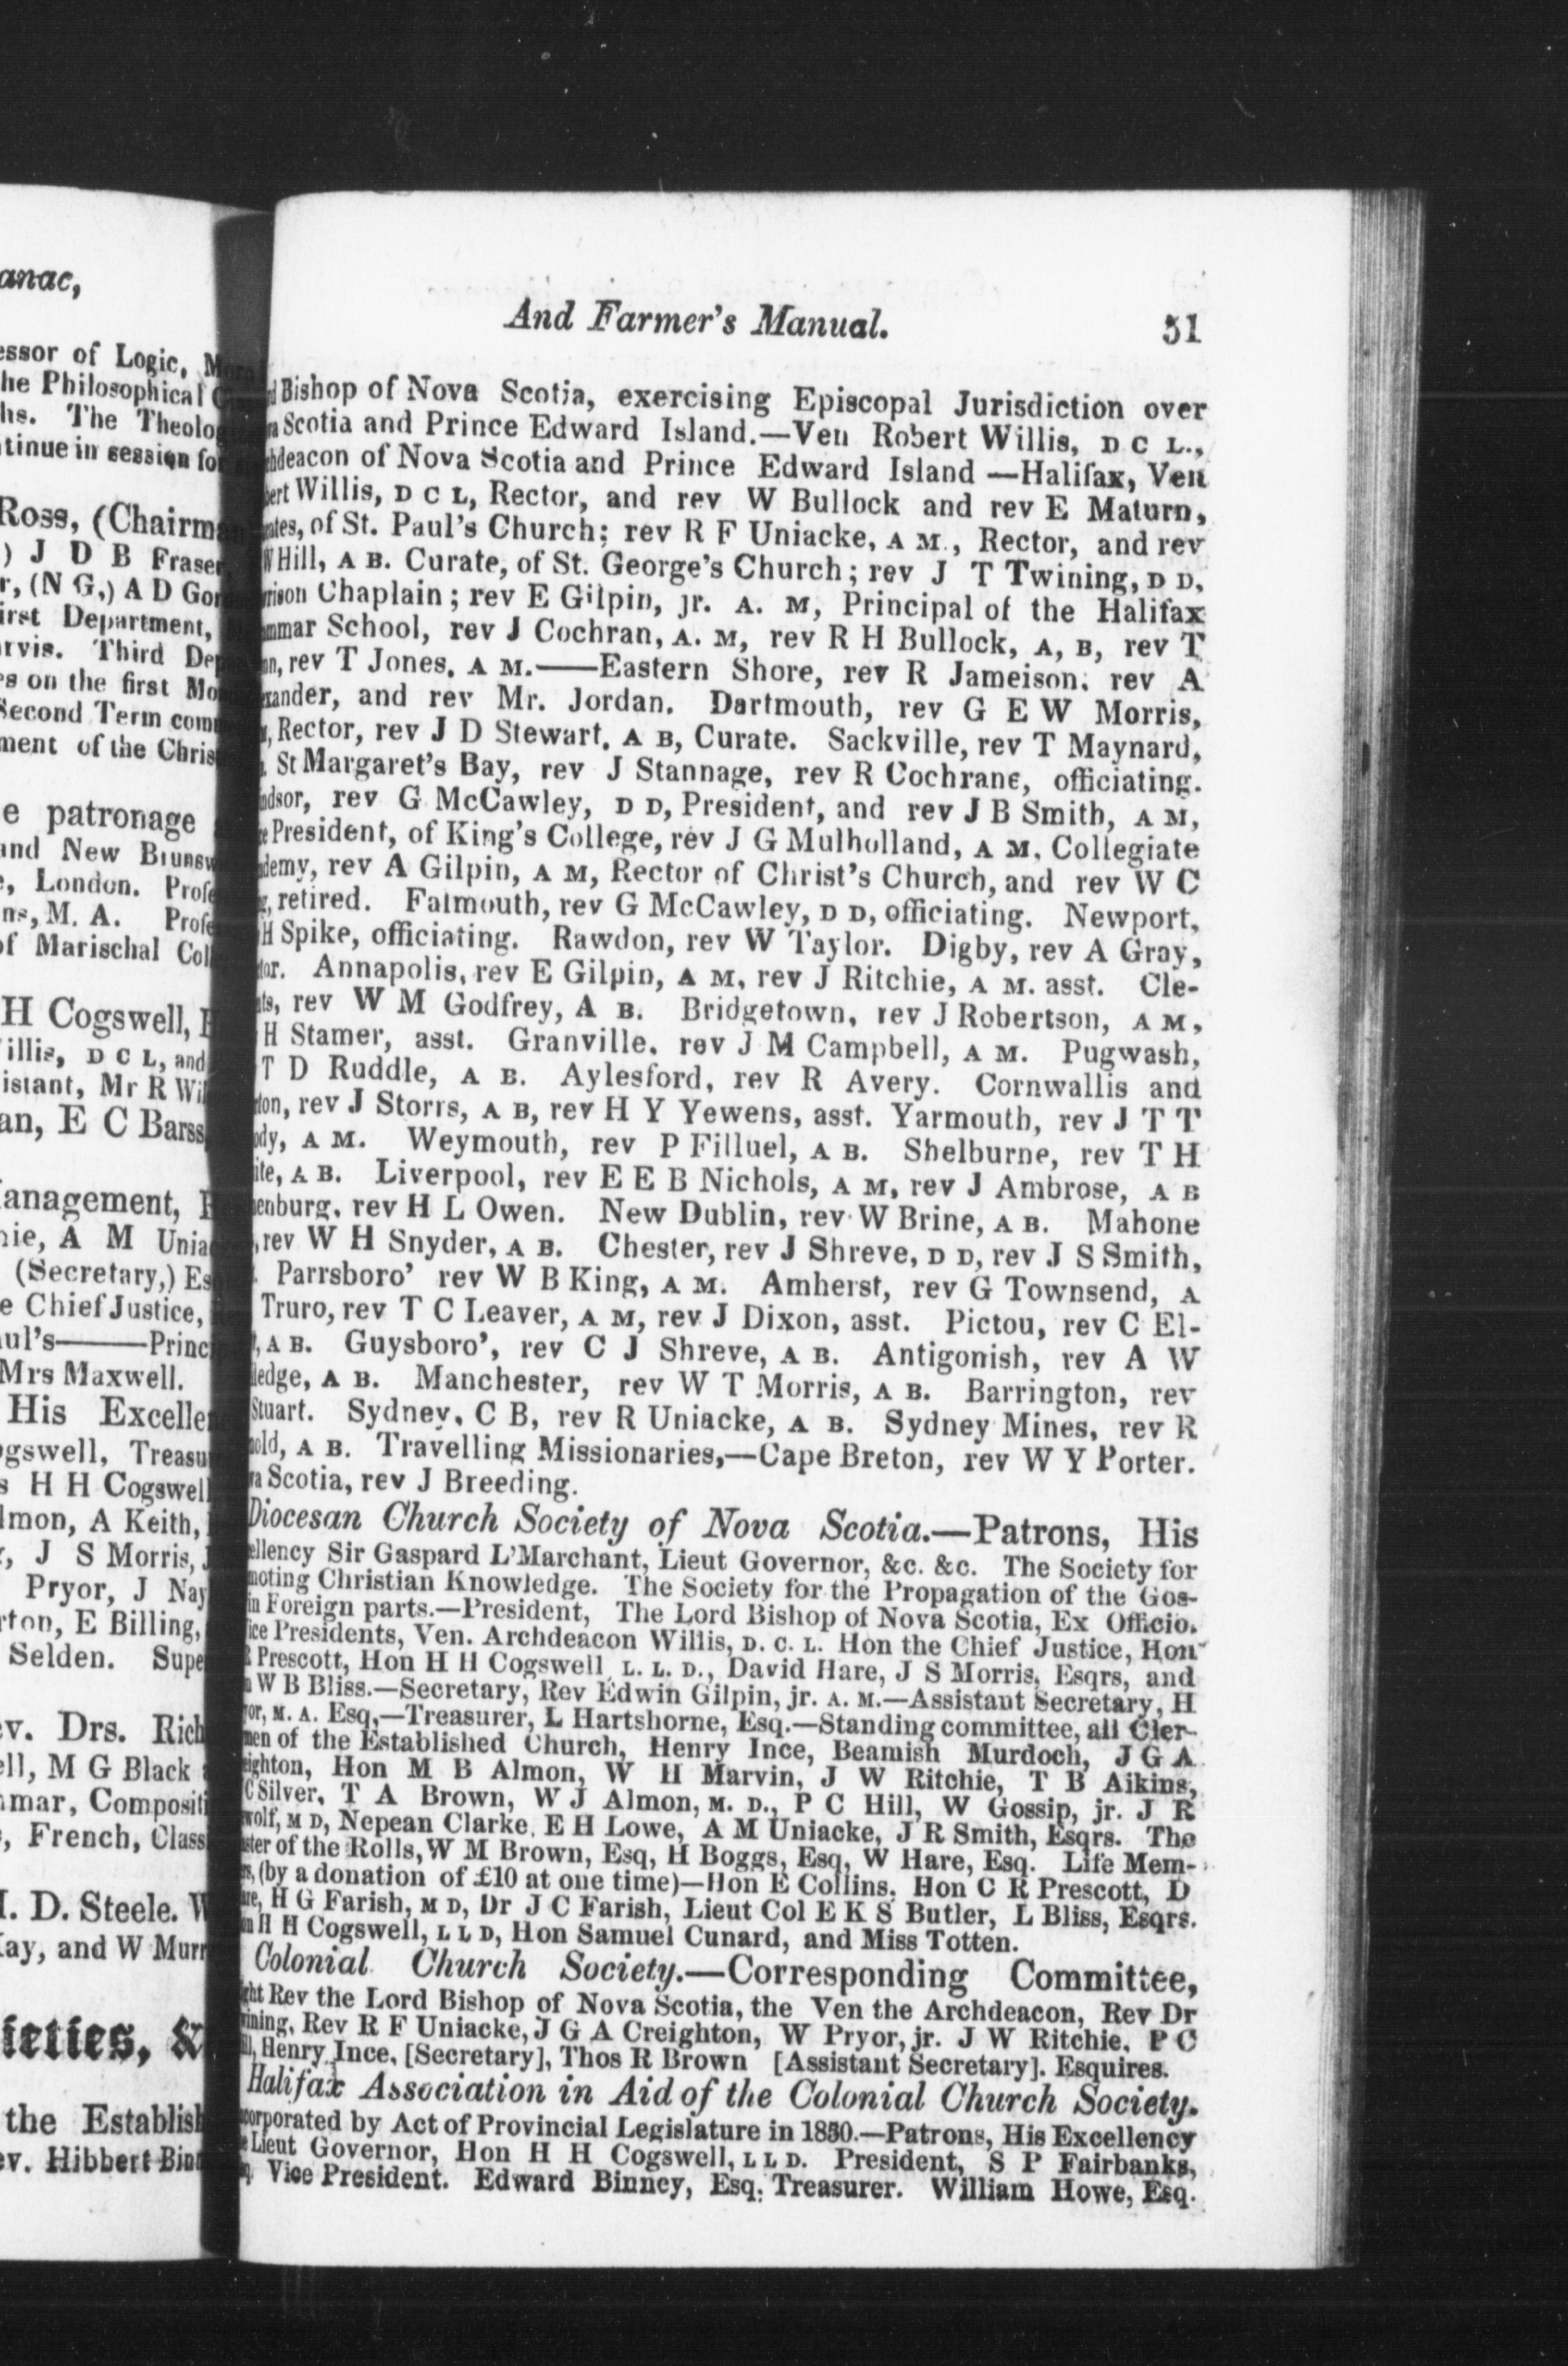 anac,
essor of Logic,
he Philosophical
hs. The
tinue in session for
Ross,
) J D B
r, (N G,) A D
irst Department,
rvis. Third
s on the first
Second Term
ment of the
e patronage
and New
, London.
ns, M. A.
of Marischal
H Cogswell,
illis, D C L, and
istant, Mr R
an, E C
anagement,
nie, A M
(Secretary,)
e Chief Justice,
ul's———
Mrs Maxwell.
His
gswell,
s H H
lmon, A Keith,
, J S Morris,
Pryor, J
rton, E Billing,
Selden.
ev. Drs.
ell, M G Black
mar,
, French,
I. D. Steele.
Kay, and W
ieties, &
the
ev. Hibbert
And Farmer's Manual. 51
Bishop of Nova Scotia, exercising Episcopal Jurisdiction over
Scotia and Prince Edward Island.—Ven Robert Willis, D C L.,
hdeacon of Nova Scotia and Prince Edward Island —Halifax, Ven
bert Willis, D C L, Rector, and rev W Bullock and rev E Maturn,
ates, of St. Paul's Church; rev R F Uniacke, A M., Rector, and rev
W Hill, A B. Curate, of St. George's Church; rev J T Twining, D D,
rison Chaplain; rev E Gilpin, jr. A. M, Principal of the Halifax
mmar School, rev J Cochran, A. M, rev R H Bullock, A, B, rev T
nn, rev T Jones, A M.——Eastern Shore, rev R Jameison, rev A
exander, and rev Mr. Jordan. Dartmouth, rev G E W Morris,
, Rector, rev J D Stewart, A B, Curate. Sackville, rev T Maynard,
. St Margaret's Bay, rev J Stannage, rev R Cochrane, officiating.
ndsor, rev G McCawley, D D, President, and rev J B Smith, A M,
e President, of King's College, rev J G Mulholland, A M, Collegiate
demy, rev A Gilpin, A M, Rector of Christ's Church, and rev W C
g, retired. Falmouth, rev G McCawley, D D, officiating. Newport,
H Spike, officiating. Rawdon, rev W Taylor. Digby, rev A Gray,
tor. Annapolis, rev E Gilpin, A M, rev J Ritchie, A M. asst. Cle-
ts, rev W M Godfrey, A B. Bridgetown, rev J Robertson, A M,
H Stamer, asst. Granville, rev J M Campbell, A M. Pugwash,
T D Ruddle, A B. Aylesford, rev R Avery. Cornwallis and
ton, rev J Storrs, A B, rev H Y Yewens, asst. Yarmouth, rev J T T
ody, A M. Weymouth, rev P Filluel, A B. Shelburne, rev T H
ite, A B. Liverpool, rev E E B Nichols, A M, rev J Ambrose, A B
enburg, rev H L Owen. New Dublin, rev W Brine, A B. Mahone
, rev W H Snyder, A B. Chester, rev J Shreve, D D, rev J S Smith,
. Parrsboro' rev W B King, A M. Amherst, rev G Townsend, A
Truro, rev T C Leaver, A M, rev J Dixon, asst. Pictou, rev C El-
, A B. Guysboro', rev C J Shreve, A B. Antigonish, rev A W
ledge, A B. Manchester, rev W T Morris, A B. Barrington, rev
Stuart. Sydney, C B, rev R Uniacke, A B. Sydney Mines, rev R
nold, A B. Travelling Missionaries,—Cape Breton, rev W Y Porter.
a Scotia, rev J Breeding.
Diocesan Church Society of Nova Scotia.—Patrons, His
ellency Sir Gaspard L'Marchant, Lieut Governor, &c. &c. The Society for
moting Christian Knowledge. The Society for the Propagation of the Gos-
in Foreign parts.—President, The Lord Bishop of Nova Scotia, Ex Officio.
ice Presidents, Ven. Archdeacon Willis, D. C. L. Hon the Chief Justice, Hon
R Prescott, Hon H H Cogswell, L. L. D., David Hare, J S Morris, Esqrs, and
n W B Bliss.—Secretary, Rev Edwin Gilpin, jr. A. M.—Assistant Secretary, H
yor, M. A. Esq,—Treasurer, L Hartshorne, Esq.—Standing committee, all Cler-
men of the Established Church, Henry Ince, Beamish Murdoch, J G A
eighton, Hon M B Almon, W H Marvin, J W Ritchie, T B Aikins,
C Silver, T A Brown, W J Almon, M. D., P C Hill, W Gossip, jr. J R
wolf, M D, Nepean Clarke, E H Lowe, A M Uniacke, J R Smith, Esqrs. The
ster of the Rolls, W M Brown, Esq, H Boggs, Esq, W Hare, Esq. Life Mem-
rs, (by a donation of £10 at one time)—Hon E Collins, Hon C R Prescott, D
are, H G Farish, M D, Dr J C Farish, Lieut Col E K S Butler, L Bliss, Esqrs.
n H H Cogswell, L L D, Hon Samuel Cunard, and Miss Totten.
Colonial Church Society.—Corresponding Committee,
ght Rev the Lord Bishop of Nova Scotia, the Ven the Archdeacon, Rev Dr
wining, Rev R F Uniacke, J G A Creighton, W Pryor, jr. J W Ritchie, P C
ll, Henry Ince, [Secretary], Thos R Brown [Assistant Secretary]. Esquires.
Halifax Association in Aid of the Colonial Church Society.
corporated by Act of Provincial Legislature in 1850.—Patrons, His Excellency
e Lieut Governor, Hon H H Cogswell, L L D. President, S P Fairbanks,
q. Vice President. Edward Binney, Esq. Treasurer. William Howe, Esq.